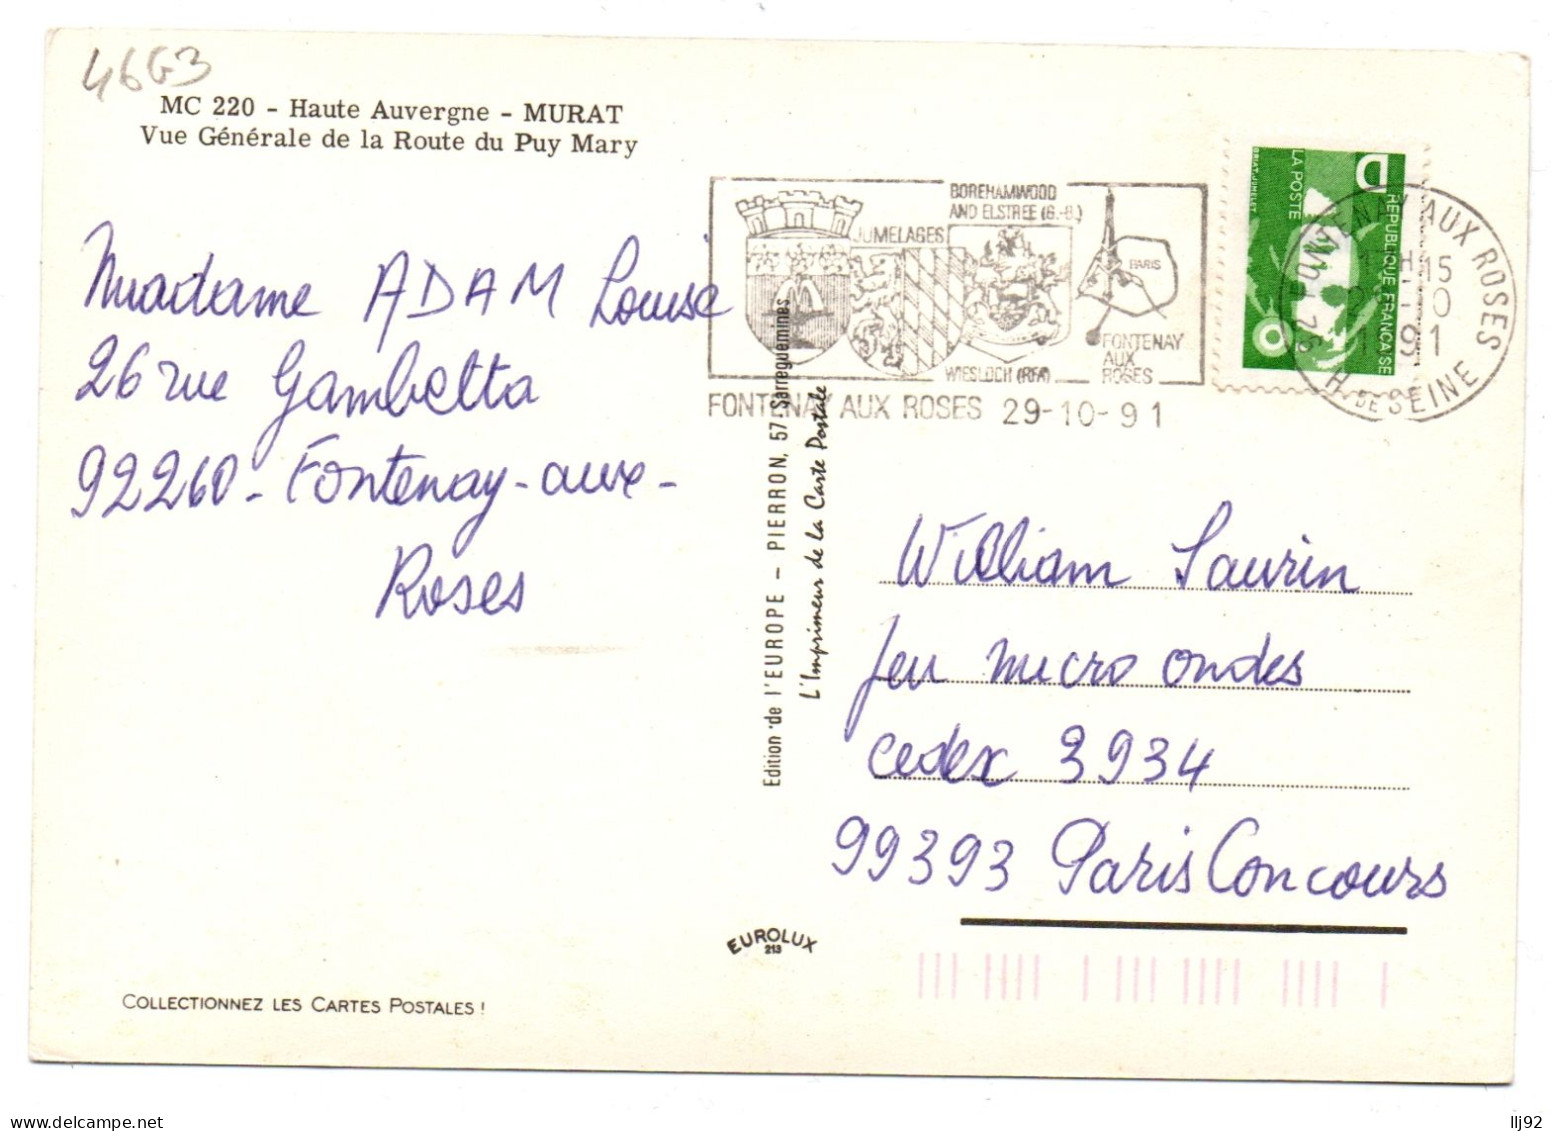 4663
MC 220 - Haute Auvergne - MURAT
Vue Générale de la Route du Puy Mary
Madame ADAM Louise
26 rue Gambetta
92260 - Fontenay-aux-
Roses
BOREHAMWOOD
AND ELSTREE (G.-B.)
JUMELAGES
PARIS
WIESLOCH (RFA)
FONTENAY
AUX
ROSES
FONTENAY AUX ROSES 29-10-91
D
LA POSTE
REPUBLIQUE FRANÇAISE
BRIAT-JUMELET
FONTENAY AUX ROSES
H. DE SEINE
Edition de l'EUROPE - PIERRON, 57-Sarreguemines
L'Imprimeur de la Carte Postale
William Saurin
Jeu micro ondes
cedex 3934
99393 Paris Concours
EUROLUX
213
COLLECTIONNEZ LES CARTES POSTALES !
www.delcampe.net
llj92